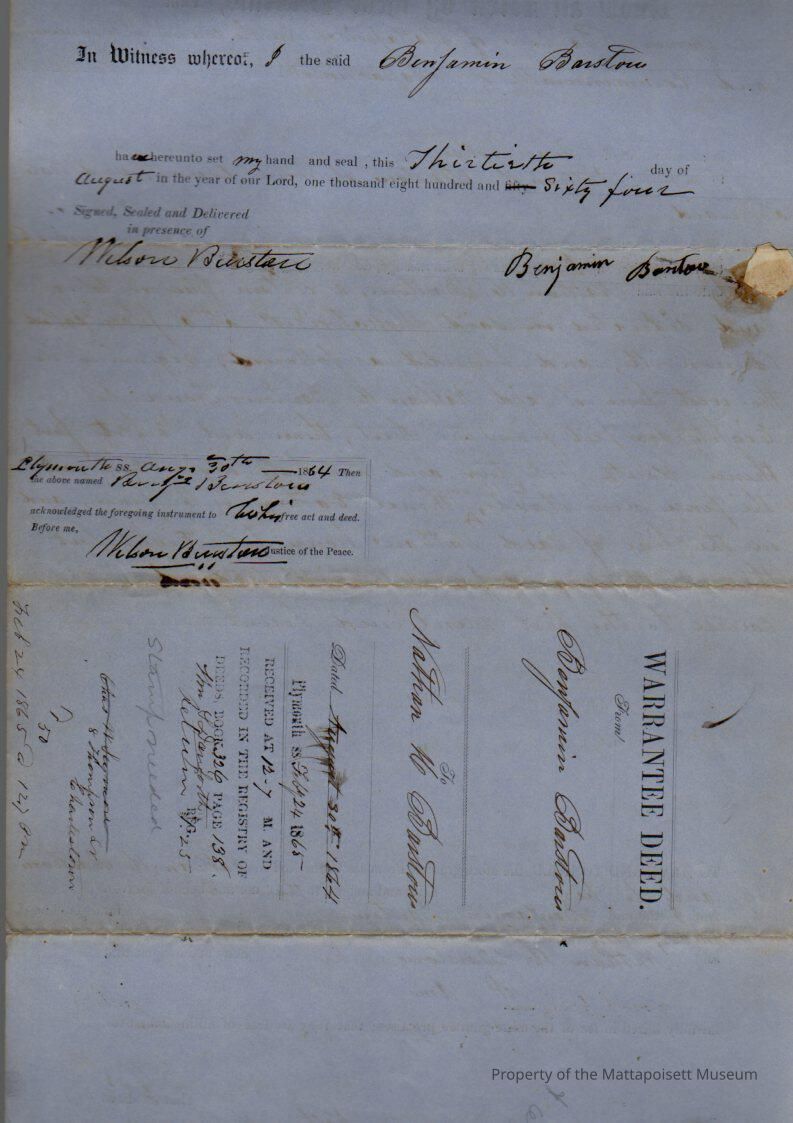 In Witness whereof, I the said Benjamin Barstow
hereunto set my hand and seal, this Thirtieth day of
August in the year of our Lord, one thousand eight hundred and fifty Sixty four
Signed, Sealed and Delivered
in presence of
Wilson Barstow Benjamin Barstow
Plymouth ss. Augt 30th 1864 Then
the above named Benj. Barstow
acknowledged the foregoing instrument to be his free act and deed.
Before me,
Wilson Barstow Justice of the Peace.
WARRANTEE DEED.
From
Benjamin Barstow
To
Nathan H Barstow
Dated August 30th 1864
Plymouth ss Feb 24 1865
RECEIVED AT 12-7 M. AND
RECORDED IN THE REGISTRY OF
DEEDS, BOOK 326 PAGE 138.
Wm S Danforth
Reg.
Return 25
Stamp needed
& Thompson Sr
Charlestown
50
Feb 24 1865 @ 12/7 Pm
Property of the Mattapoisett Museum